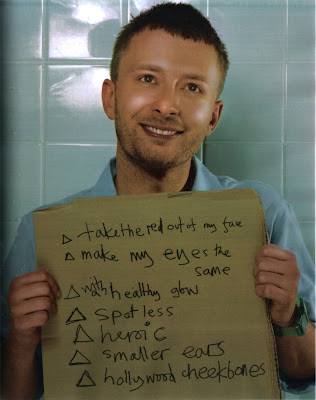 take the red out of my face
make my eyes the
same
with a healthy glow
spotless
heroic
smaller ears
hollywood cheekbones